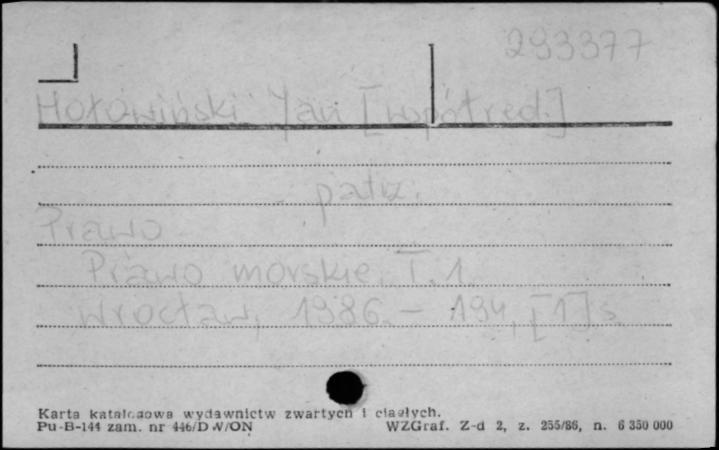 293377
Hołowiński Jan [współred.]
patrz.
Prawo
Prawo morskie. T. 1.
Wrocław, 1986. – 194, [1] s.
Karta katalogowa wydawnictw zwartych i ciągłych.
Pu-B-144 zam. nr 446/DW/ON WZGraf. Z-d 2, z. 255/86, n. 6 350 000